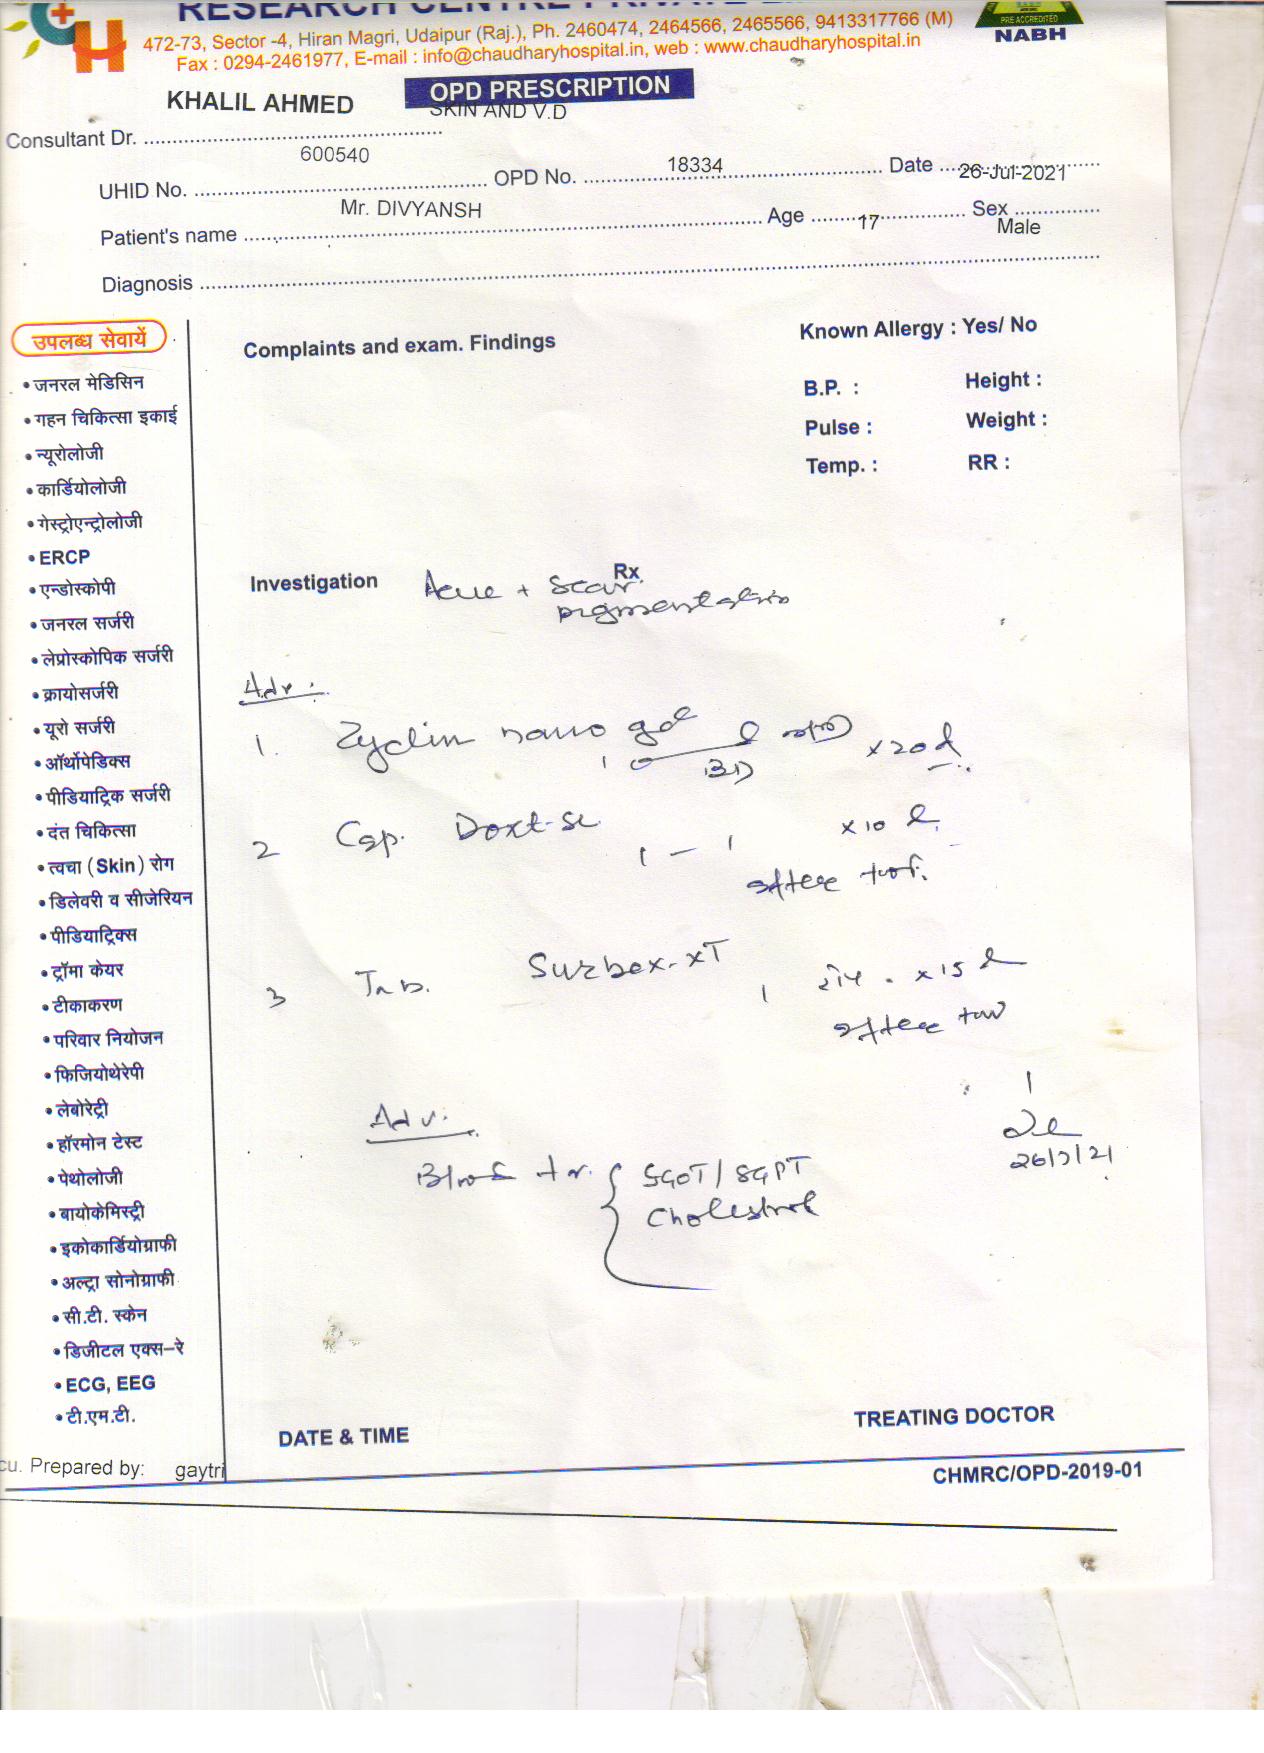 RESEARCH CENTRE PRIVATE
472-73, Sector -4, Hiran Magri, Udaipur (Raj.), Ph. 2460474, 2464566, 2465566, 9413317766 (M)
Fax : 0294-2461977, E-mail : info@chaudharyhospital.in, web : www.chaudharyhospital.in
PRE ACCREDITED
NABH
OPD PRESCRIPTION
KHALIL AHMED SKIN AND V.D
Consultant Dr.
600540 18334 26-Jul-2021
UHID No. OPD No. Date
Mr. DIVYANSH 17 Male
Patient's name Age Sex
Diagnosis
उपलब्ध सेवायें
• जनरल मेडिसिन
• गहन चिकित्सा इकाई
• न्यूरोलोजी
• कार्डियोलोजी
• गेस्ट्रोएन्ट्रोलोजी
• ERCP
• एन्डोस्कोपी
• जनरल सर्जरी
• लेप्रोस्कोपिक सर्जरी
• क्रायोसर्जरी
• यूरो सर्जरी
• ऑर्थोपेडिक्स
• पीडियाट्रिक सर्जरी
• दंत चिकित्सा
• त्वचा (Skin) रोग
• डिलेवरी व सीजेरियन
• पीडियाट्रिक्स
• ट्रॉमा केयर
• टीकाकरण
• परिवार नियोजन
• फिजियोथेरेपी
• लेबोरेट्री
• हॉरमोन टेस्ट
• पेथोलोजी
• बायोकेमिस्ट्री
• इकोकार्डियोग्राफी
• अल्ट्रा सोनोग्राफी
• सी.टी. स्केन
• डिजीटल एक्स-रे
• ECG, EEG
• टी.एम.टी.
Complaints and exam. Findings
Known Allergy : Yes/ No
B.P. : Height :
Pulse : Weight :
Temp. : RR :
Investigation Rx
Acne + Scar
pigmentation
Adv.
1. Zyclin nano gel x 20 d
BD
2 Cap. Doxt-SL 1 - 1 x 10 d
3 Tab. Surbex-XT 1 x 15 d
26/7/21
Adv.
Blood for { SGOT / SGPT
Cholestrol
DATE & TIME
TREATING DOCTOR
Prepared by: gaytri
CHMRC/OPD-2019-01